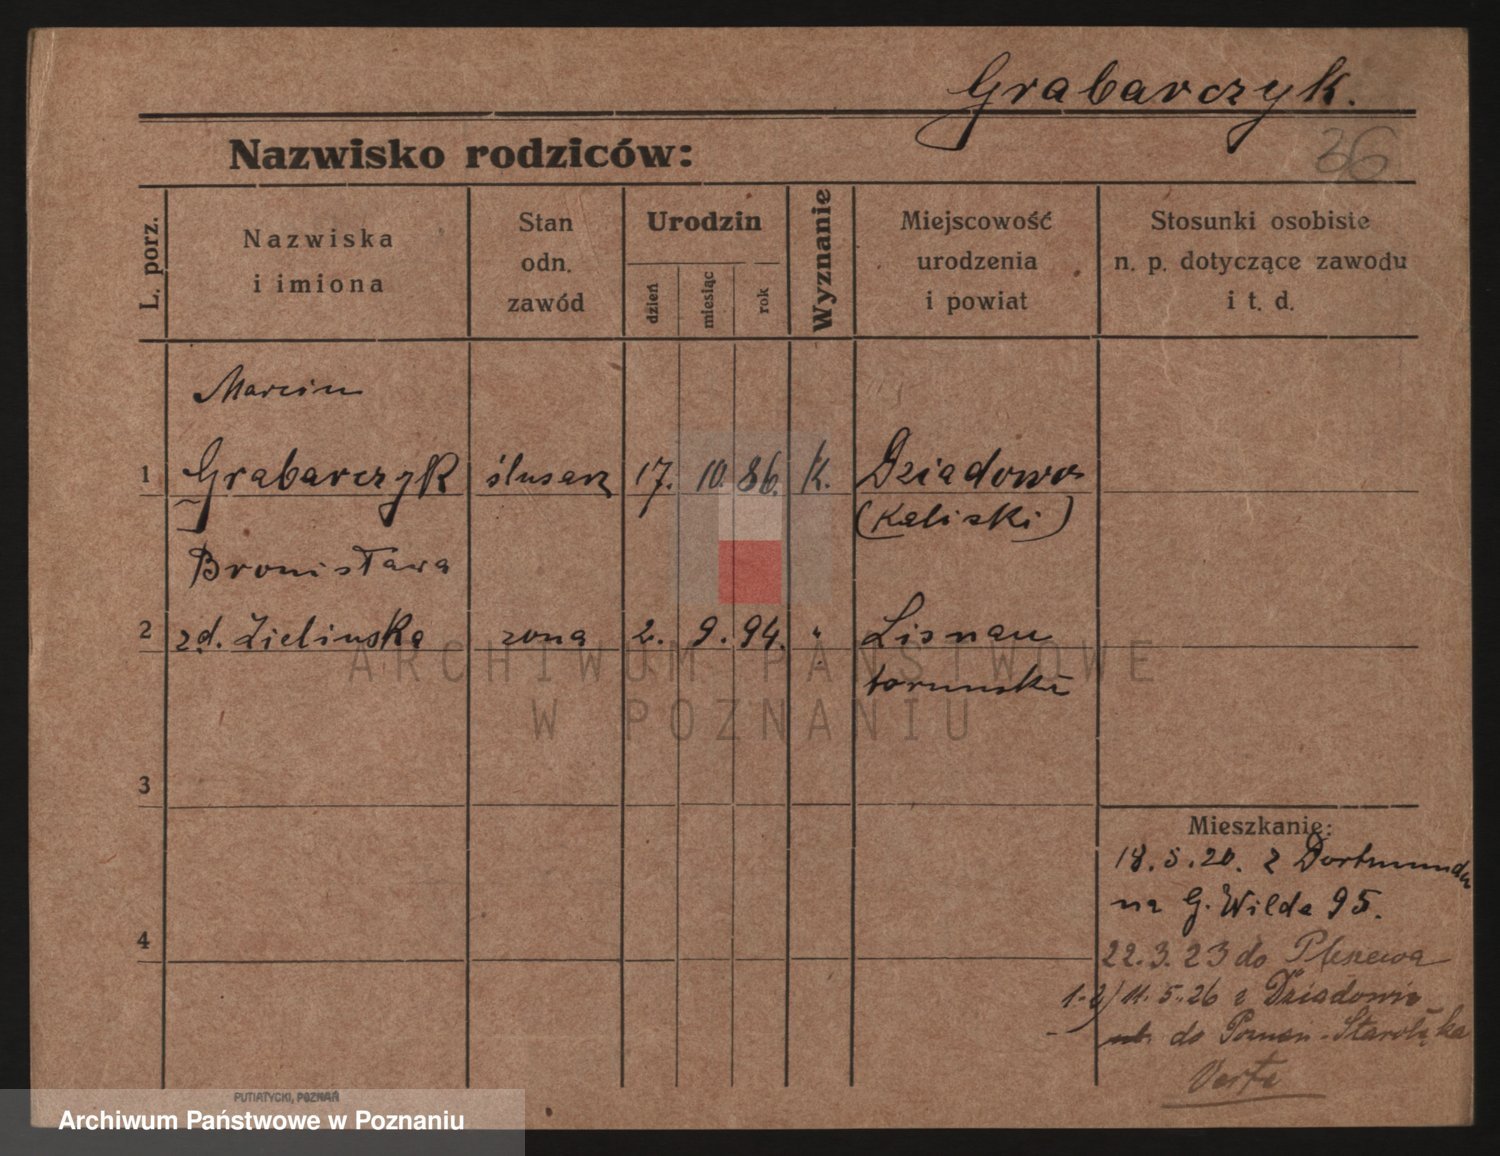 Grabarczyk.
36
Nazwisko rodziców:
L. porz.
Nazwiska
i imiona
Stan
odn.
zawód
Urodzin
dzień
miesiąc
rok
Wyznanie
Miejscowość
urodzenia
i powiat
Stosunki osobiste
n. p. dotyczące zawodu
i t. d.
Marcin
1 Grabarczyk ślusarz 17. 10. 86. K. Dziadowo
(Kaliski)
Bronisława
2 zd. Zielinska zona 2. 9. 94. " Lisnau
torunski
ARCHIWUM PAŃSTWOWE
W POZNANIU
3
Mieszkanie:
18.5.20. z Dortmundu
na G. Wilda 95.
4
22.3.23 do Pleszewa
1-2) 11.5.26 z Dziadowic
do Poznan-Starołęka
Verte
PUTIATYCKI, POZNAŃ
Archiwum Państwowe w Poznaniu